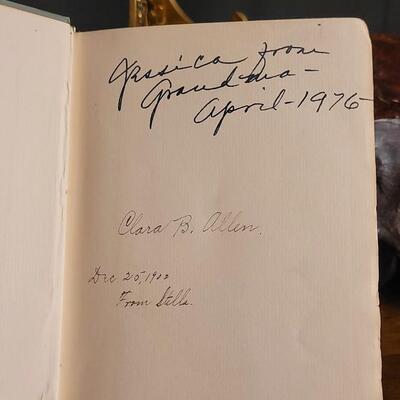 Jessica from
Grandma-
April-1976
Clara B. Allen.
Dec 25, 1902
From Stella.